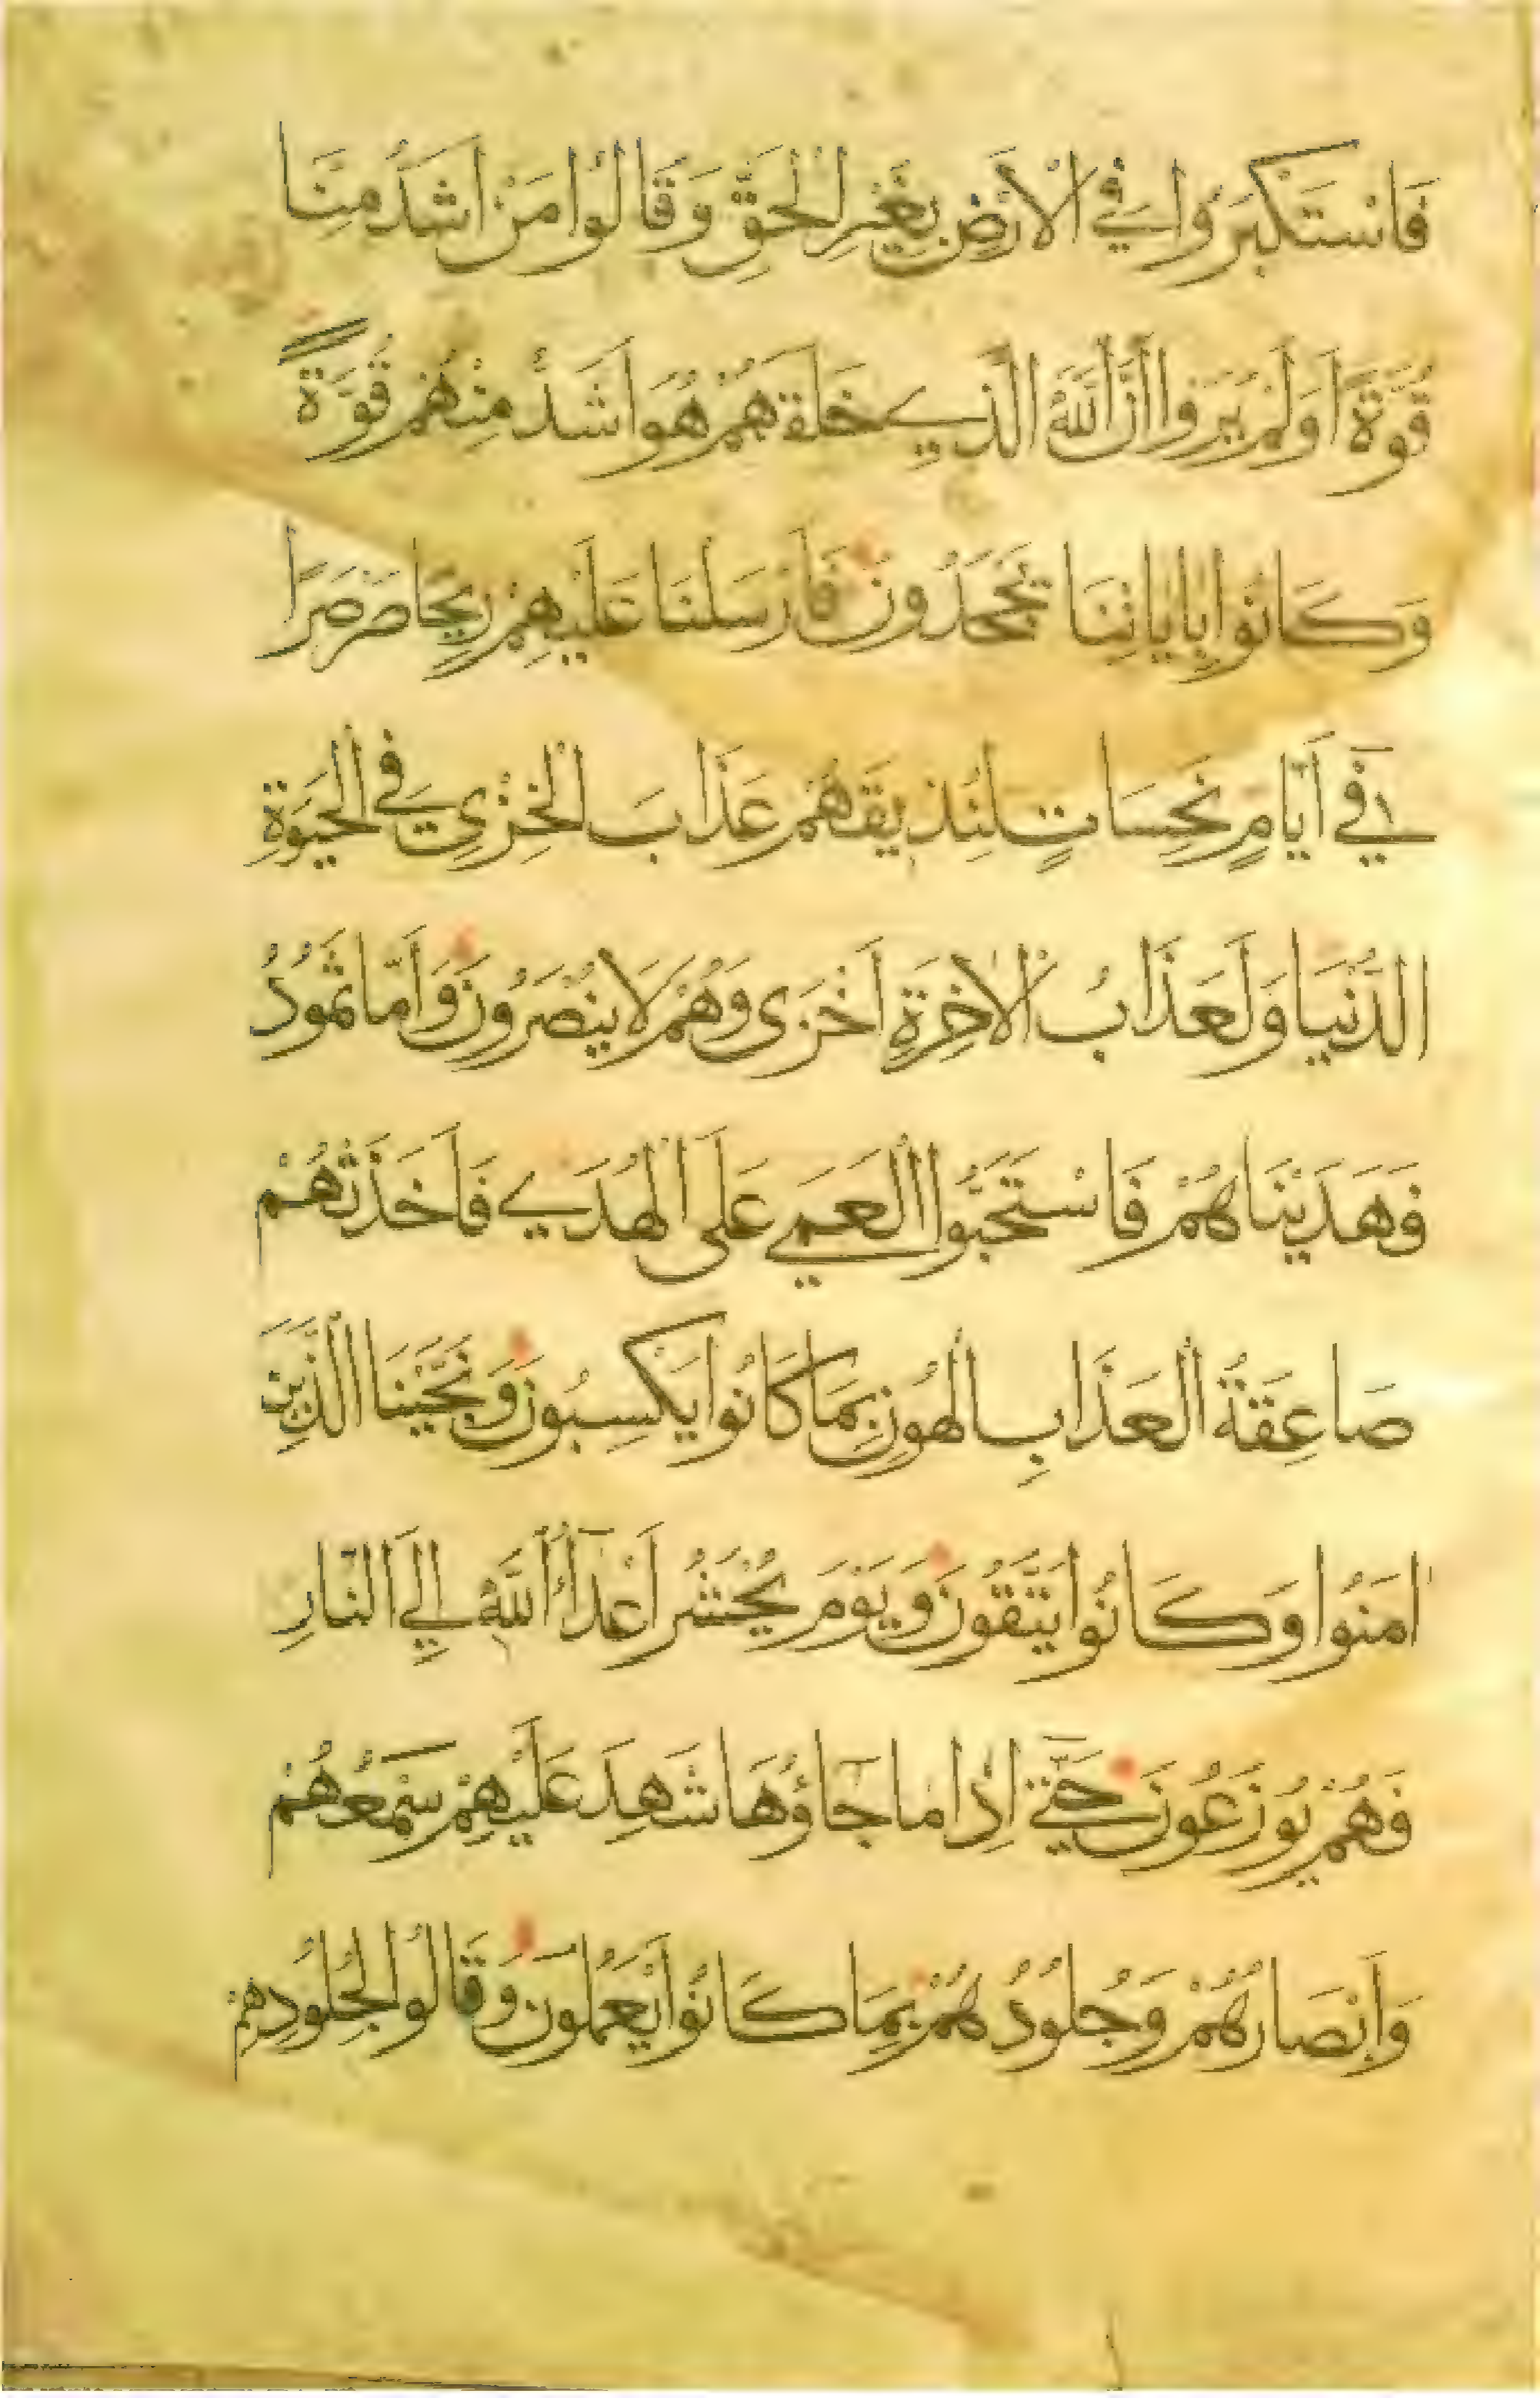 فَاسْتَكْبَرُوا فِي الْأَرْضِ بِغَيْرِ الْحَقِّ وَقَالُوا مَنْ اَشَدُّ مِنَّا
قُوَّةً اَوَلَمْ يَرَوْا اَنَّ اللَّهَ الَّذِي خَلَقَهُمْ هُوَ اَشَدُّ مِنْهُمْ قُوَّةً
وَكَانُوا بِايَاتِنَا يَجْحَدُونَ فَاَرْسَلْنَا عَلَيْهِمْ رِيحًا صَرْصَرًا
فِي اَيَّامٍ نَحِسَاتٍ لِنُذِيقَهُمْ عَذَابَ الْخِزْيِ فِي الْحَيَوةِ
الدُّنْيَا وَلَعَذَابُ الْاخِرَةِ اَخْزَى وَهُمْ لَا يُنْصَرُونَ وَاَمَّا ثَمُودُ
فَهَدَيْنَاهُمْ فَاسْتَحَبُّوا الْعَمَي عَلَى الْهُدَي فَاَخَذَتْهُمْ
صَاعِقَةُ الْعَذَابِ الْهُونِ بِمَا كَانُوا يَكْسِبُونَ وَنَجَّيْنَا الَّذِينَ
امَنُوا وَكَانُوا يَتَّقُونَ وَيَوْمَ يُحْشَرُ اَعْدَاءُ اللَّهِ اِلَي النَّارِ
فَهُمْ يُوزَعُونَ حَتَّي اِذَا مَا جَاؤُهَا شَهِدَ عَلَيْهِمْ سَمْعُهُمْ
وَاَبْصَارُهُمْ وَجُلُودُهُمْ بِمَا كَانُوا يَعْمَلُونَ وَقَالُوا لِجُلُودِهِمْ